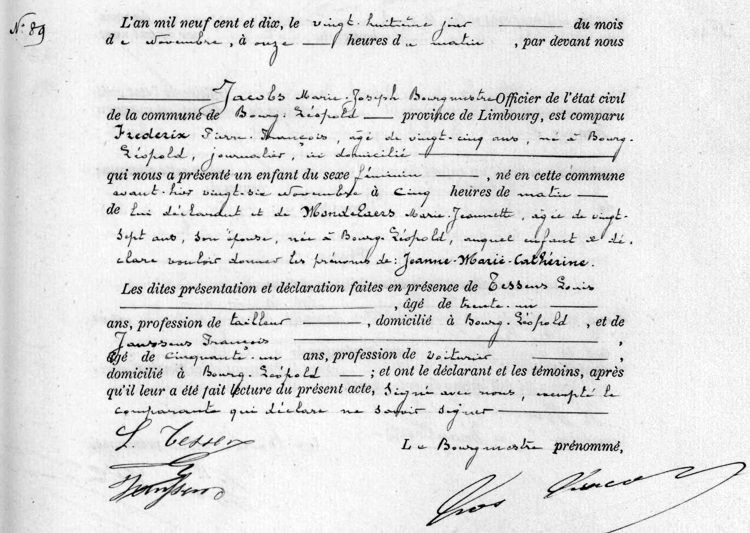 N: 89
L'an mil neuf cent et dix, le vingt-huitième jour du mois
de Novembre, à onze heures du matin, par devant nous
Jacobs Marie-Joseph Bourgmestre Officier de l'état civil
de la commune de Bourg-Léopold province de Limbourg, est comparu
Frederix Pierre-François, âgé de vingt-cinq ans, né à Bourg-
Léopold, journalier, ici domicilié
qui nous a présenté un enfant du sexe féminin, né en cette commune
avant-hier vingt-six Novembre à cinq heures de matin
de lui déclarant et de Mondelaers Marie-Jeannette, âgée de vingt-
sept ans, son épouse, née à Bourg-Léopold, auquel enfant il dé-
clare vouloir donner les prénoms de: Jeanne-Marie-Cathérine.
Les dites présentation et déclaration faites en présence de Tessens Louis
, âgé de trente-un
ans, profession de tailleur, domicilié à Bourg-Léopold, et de
Janssens François,
âgé de cinquante-un ans, profession de voiturier
domicilié à Bourg-Léopold; et ont le déclarant et les témoins, après
qu'il leur a été fait lecture du présent acte, signé avec nous, excepté le
comparante qui déclare ne savoir signer
L. Tessens
Le Bourgmestre prénommé,
Janssens